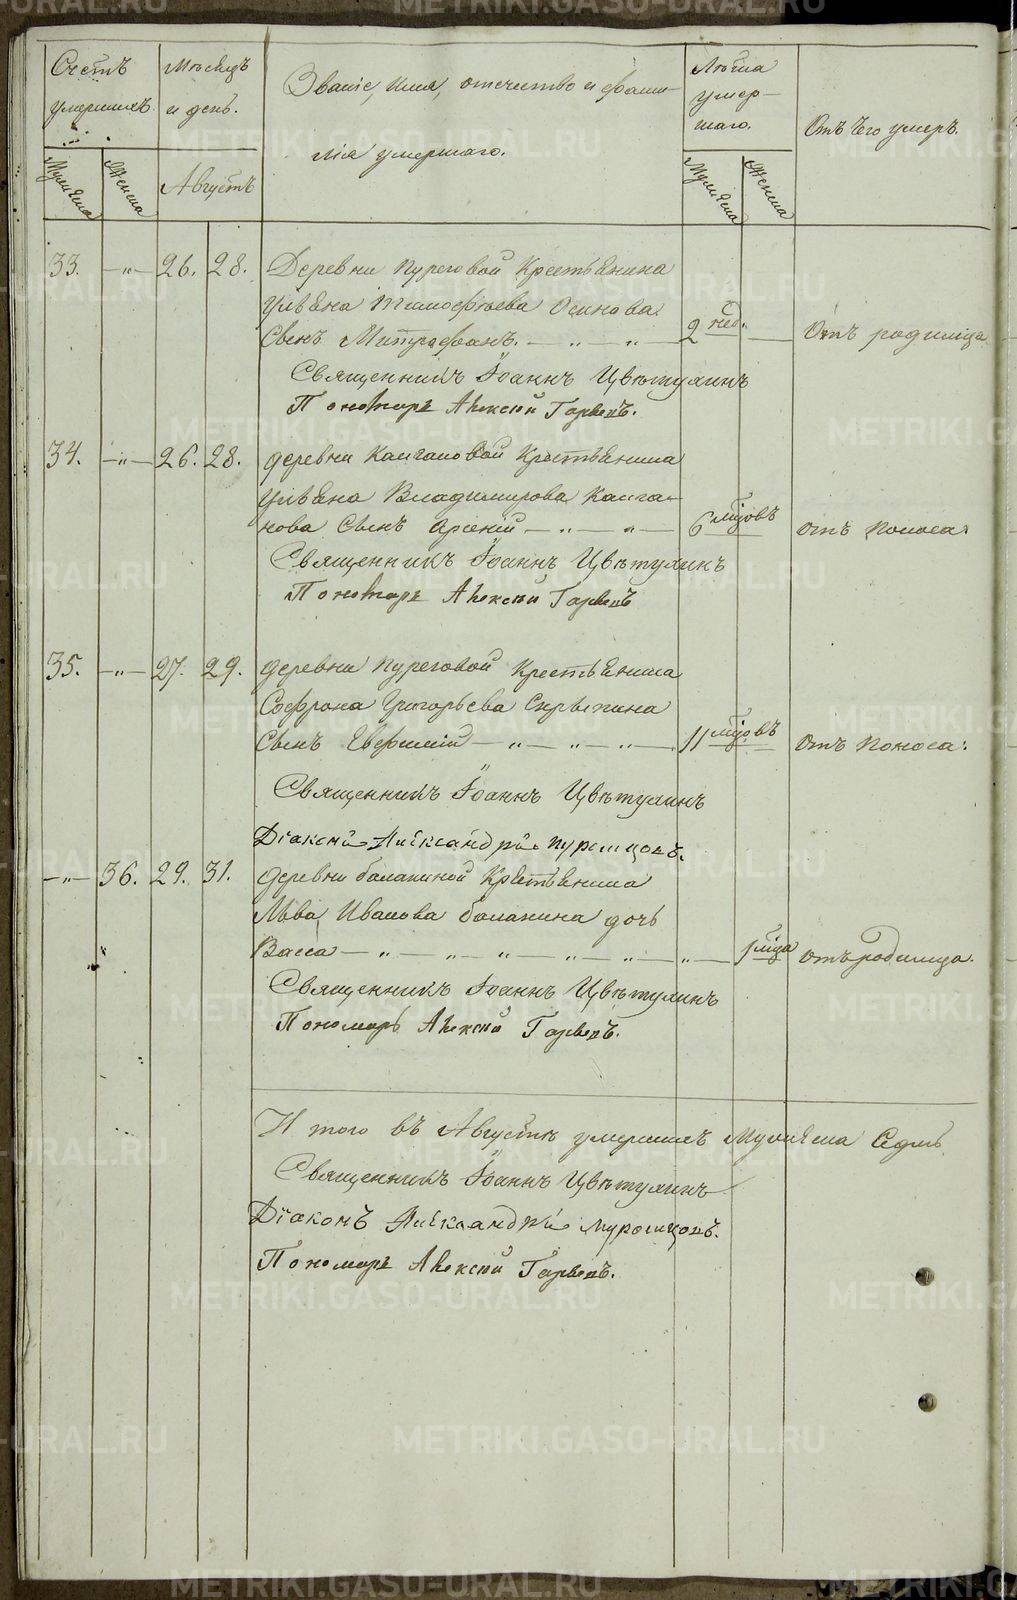 Счетъ умершихъ.
Мѣсяцъ и день.
Званіе, имя, отечество и фами-
лія умершаго.
Лѣта умер-
шаго.
Отъ чего умеръ.
Мужеска
Женска
Августъ
Мужеска
Женска
33. — „ — 26. 28. Деревни Пуреговой Крестьянина
Ульяна Тимофѣева Осинова
Сынъ Митрофанъ. — „ — „ — 2 нед. — Отъ родимца
Священникъ Іоаннъ Цвѣтухинъ
Пономарь Алексѣй
34. — „ — 26. 28. деревни Каигановой Крестьянина
Ульяна Владимирова Каига-
нова Сынъ Арсеній — „ — „ — 6 мцовъ Отъ поноса.
Священникъ Іоаннъ Цвѣтухинъ
Пономарь Алексѣй
35. — „ — 27. 29. деревни Пуреговой Крестьянина
Софрона Григорьева Скрыпина
Сынъ Евфимій — „ — „ — „ — 11 мцовъ Отъ поноса.
Священникъ Іоаннъ Цвѣтухинъ
Діаконъ Александръ
— „ — 36. 29. 31. Деревни балакиной Крестьянина
Льва Иванова балакина дочь
Васса — „ — „ — „ — „ — „ — „ — 1 мца Отъ родимца.
Священникъ Іоаннъ Цвѣтухинъ
Пономарь Алексѣй
Итого въ Августѣ умершихъ Мужеска Седмь
Священникъ Іоаннъ Цвѣтухинъ
Діаконъ Александръ Муромцовъ.
Пономарь Алексѣй
METRIKI.GASO-URAL.RU